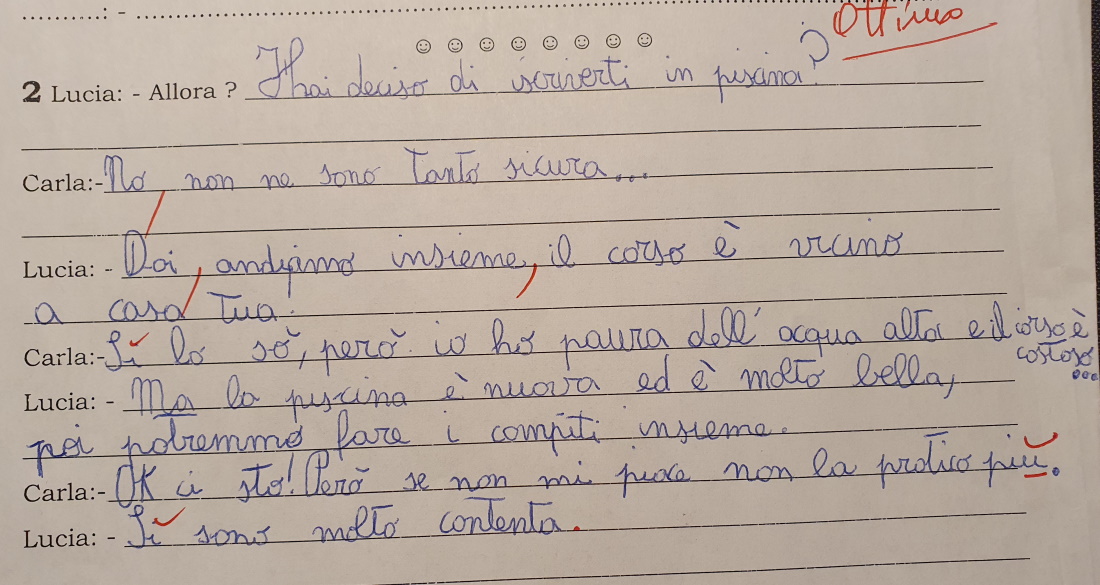 ............: - ............
Ottimo
☺ ☺ ☺ ☺ ☺ ☺ ☺ ☺
2 Lucia: - Allora ? Hai deciso di iscriverti in piscina?
Carla:- No, non ne sono tanto sicura...
Lucia: - Dai, andiamo insieme, il corso è vicino
a casa tua!
Carla:- Sì lo sò, però io ho paura dell'acqua alta e il corso è
costoso
...
Lucia: - Ma la piscina è nuova ed è molto bella,
poi potremmo fare i compiti insieme.
Carla:- OK ci sto! Però se non mi piace non la pratico più.
Lucia: - Sì sono molto contenta.